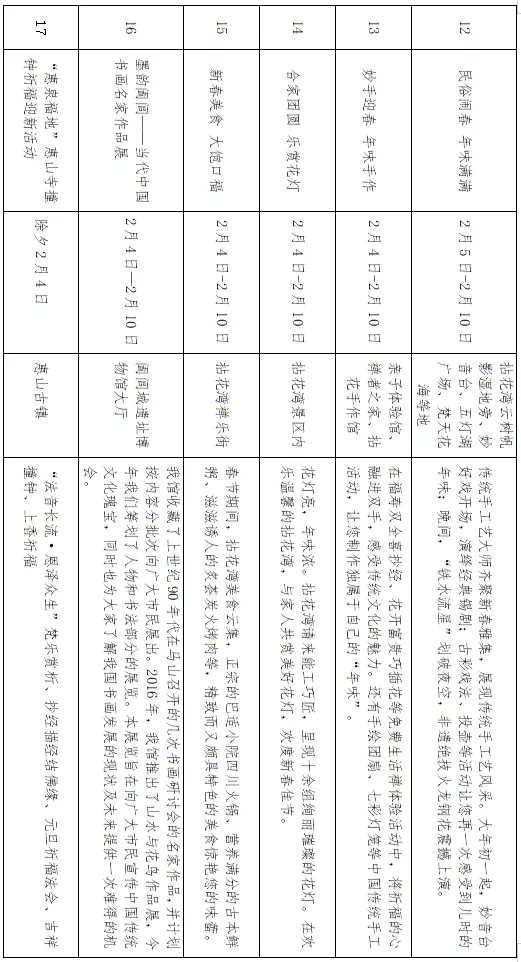 12
民俗闹春 年味满满
2月5日-2月10日
拈花湾云树帆
影湿地旁、妙
音台、五灯湖
广场、梵天花
海等地
传统手工艺大师齐聚新春雅集，展现传统手工艺风采。大年初一起，妙音台
好戏开场，演绎经典锡剧；古彩戏法、投壶等活动让您再一次感受到儿时的
年味；晚间，“铁水流星”划破夜空，非遗绝技火龙钢花震撼上演。
13
妙手迎春 年味手作
2月4日-2月10日
亲子体验馆、
禅者之家、拈
花手作馆
在福寿双全喜抄经、花开富贵巧插花等免费生活禅体验活动中，将祈福的心
融进双手，感受传统文化的魅力。还有手绘团扇、七彩灯笼等中国传统手工
活动，让您制作独属于自己的“年味”。
14
合家团圆 乐赏花灯
2月4日-2月10日
拈花湾景区内
花灯亮，年味浓。拈花湾请来能工巧匠，呈现十余组绚丽璀璨的花灯。在欢
乐温馨的拈花湾，与家人共赏美好花灯，欢度新春佳节。
15
新春美食 大饱口福
2月4日-2月10日
拈花湾禅乐街
春节期间，拈花湾美食云集，正宗的巴适小院四川火锅、营养满分的古本鲜
粥、滋滋诱人的炙荟炭火烤肉等，精致而又颇具特色的美食惊艳您的味蕾。
16
墨韵阖闾——当代中国
书画名家作品展
2月4日—2月10日
阖闾城遗址博
物馆大厅
我馆收藏了上世纪90年代在马山召开的几次书画研讨会的名家作品，并计划
按内容分批次向广大市民展出。2016年，我馆推出了山水与花鸟作品展，今
年我们筹划了人物和书法部分的展览。本展览旨在向广大市民宣传中国传统
文化瑰宝，同时也为大家了解我国书画发展的现状及未来提供一次难得的机
会。
17
“惠泉福地”惠山寺撞
钟祈福迎新活动
除夕2月4日
惠山古镇
“法音长流·恩泽众生”梵乐赏析、抄经描经结佛缘、元旦祈福法会、吉祥
撞钟、上香祈福